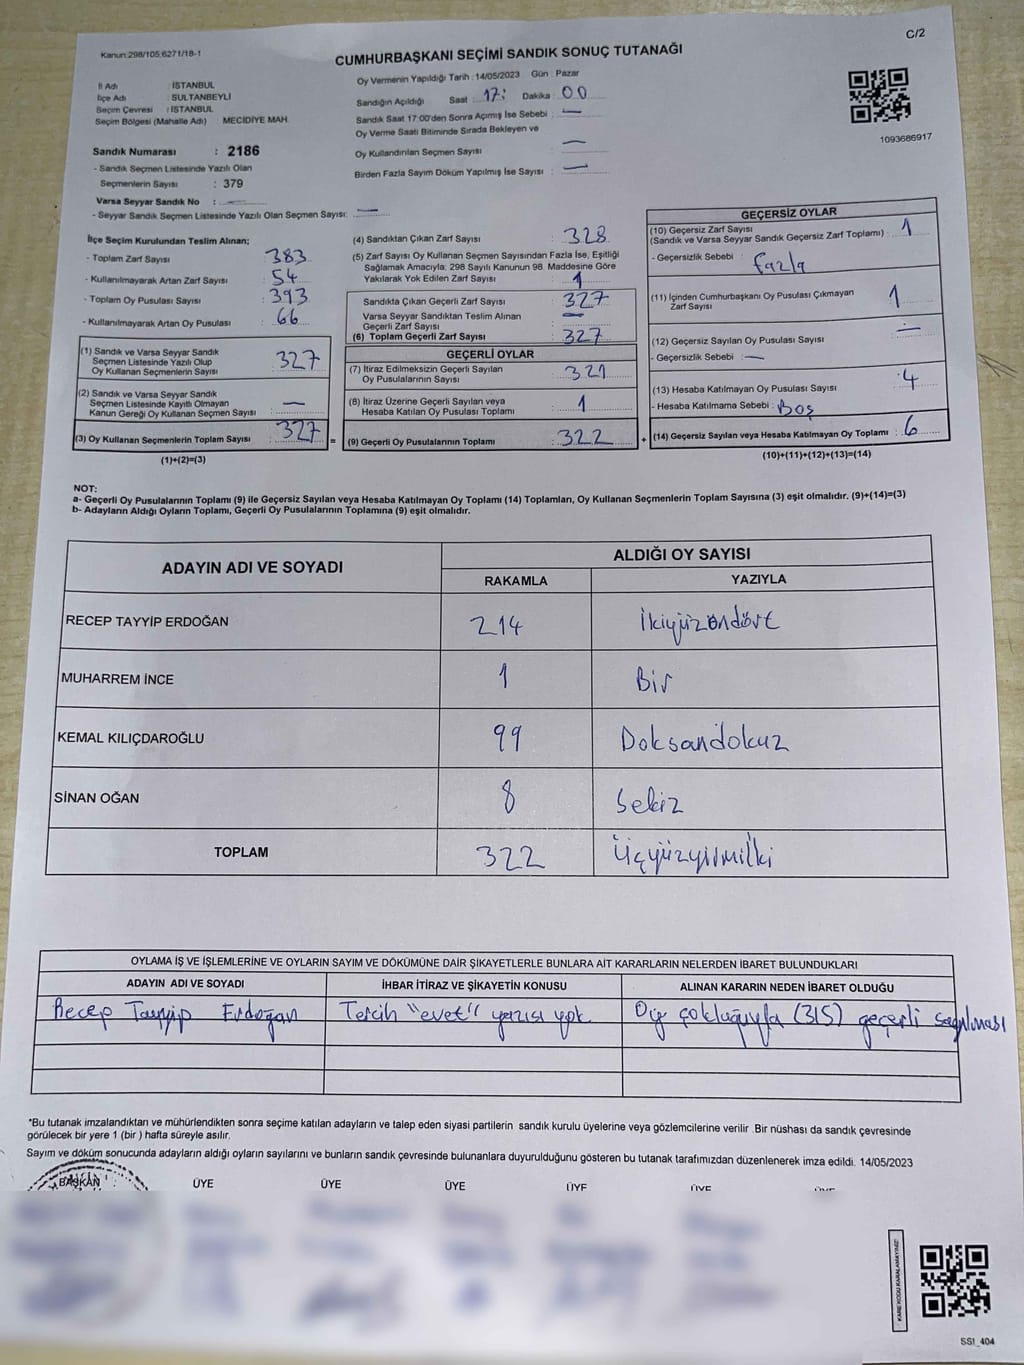 C/2
Kanun:298/105;6271/18-1
CUMHURBAŞKANI SEÇİMİ SANDIK SONUÇ TUTANAĞI
İl Adı : İSTANBUL
İlçe Adı : SULTANBEYLİ
Seçim Çevresi : İSTANBUL
Seçim Bölgesi (Mahalle Adı) MECİDİYE MAH.
Sandık Numarası : 2186
- Sandık Seçmen Listesinde Yazılı Olan
Seçmenlerin Sayısı : 379
Varsa Seyyar Sandık No : —
- Seyyar Sandık Seçmen Listesinde Yazılı Olan Seçmen Sayısı: —
Oy Vermenin Yapıldığı Tarih : 14/05/2023 Gün : Pazar
Sandığın Açıldığı Saat : 17: Dakika : 00
Sandık Saat 17:00'den Sonra Açımış İse Sebebi : —
Oy Verme Saati Bitiminde Sırada Bekleyen ve
Oy Kullandırılan Seçmen Sayısı —
Birden Fazla Sayım Döküm Yapılmış İse Sayısı : —
1093686917
İlçe Seçim Kurulundan Teslim Alınan;
- Toplam Zarf Sayısı : 383
- Kullanılmayarak Artan Zarf Sayısı : 54
- Toplam Oy Pusulası Sayısı : 393
- Kullanılmayarak Artan Oy Pusulası : 66
(1) Sandık ve Varsa Seyyar Sandık
Seçmen Listesinde Yazılı Olup
Oy Kullanan Seçmenlerin Sayısı : 327
(2) Sandık ve Varsa Seyyar Sandık
Seçmen Listesinde Kayıtlı Olmayan
Kanun Gereği Oy Kullanan Seçmen Sayısı : —
(3) Oy Kullanan Seçmenlerin Toplam Sayısı : 327 =
(1)+(2)=(3)
(4) Sandıktan Çıkan Zarf Sayısı : 328
(5) Zarf Sayısı Oy Kullanan Seçmen Sayısından Fazla İse, Eşitliği
Sağlamak Amacıyla; 298 Sayılı Kanunun 98. Maddesine Göre
Yakılarak Yok Edilen Zarf Sayısı : 1
Sandıkta Çıkan Geçerli Zarf Sayısı : 327
Varsa Seyyar Sandıktan Teslim Alınan
Geçerli Zarf Sayısı : —
(6) Toplam Geçerli Zarf Sayısı : 327
GEÇERLİ OYLAR
(7) İtiraz Edilmeksizin Geçerli Sayılan
Oy Pusulalarının Sayısı : 321
(8) İtiraz Üzerine Geçerli Sayılan veya
Hesaba Katılan Oy Pusulası Toplamı : 1
(9) Geçerli Oy Pusulalarının Toplamı : 322 +
GEÇERSİZ OYLAR
(10) Geçersiz Zarf Sayısı
(Sandık ve Varsa Seyyar Sandık Geçersiz Zarf Toplamı) : 1
- Geçersizlik Sebebi : fazla
(11) İçinden Cumhurbaşkanı Oy Pusulası Çıkmayan
Zarf Sayısı : 1
(12) Geçersiz Sayılan Oy Pusulası Sayısı : —
- Geçersizlik Sebebi : —
(13) Hesaba Katılmayan Oy Pusulası Sayısı : 4
- Hesaba Katılmama Sebebi : Boş
(14) Geçersiz Sayılan veya Hesaba Katılmayan Oy Toplamı : 6
(10)+(11)+(12)+(13)=(14)
NOT:
a- Geçerli Oy Pusulalarının Toplamı (9) ile Geçersiz Sayılan veya Hesaba Katılmayan Oy Toplamı (14) Toplamları, Oy Kullanan Seçmenlerin Toplam Sayısına (3) eşit olmalıdır. (9)+(14)=(3)
b- Adayların Aldığı Oyların Toplamı, Geçerli Oy Pusulalarının Toplamına (9) eşit olmalıdır.
ADAYIN ADI VE SOYADI ALDIĞI OY SAYISI
RAKAMLA YAZIYLA
RECEP TAYYİP ERDOĞAN 214 İkiyüzondört
MUHARREM İNCE 1 Bir
KEMAL KILIÇDAROĞLU 99 Doksandokuz
SİNAN OĞAN 8 Sekiz
TOPLAM 322 Üçyüzyirmiİki
OYLAMA İŞ VE İŞLEMLERİNE VE OYLARIN SAYIM VE DÖKÜMÜNE DAİR ŞİKAYETLERLE BUNLARA AİT KARARLARIN NELERDEN İBARET BULUNDUKLARI
ADAYIN ADI VE SOYADI İHBAR İTİRAZ VE ŞİKAYETİN KONUSU ALINAN KARARIN NEDEN İBARET OLDUĞU
Recep Tayyip Erdoğan Tercih "evet" yazısı yok Oy çokluğuyla (315) geçerli sayılması
*Bu tutanak imzalandıktan ve mühürlendikten sonra seçime katılan adayların ve talep eden siyasi partilerin sandık kurulu üyelerine veya gözlemcilerine verilir .Bir nüshası da sandık çevresinde
görülecek bir yere 1 (bir ) hafta süreyle asılır.
Sayım ve döküm sonucunda adayların aldığı oyların sayılarını ve bunların sandık çevresinde bulunanlara duyurulduğunu gösteren bu tutanak tarafımızdan düzenlenerek imza edildi. 14/05/2023
BAŞKAN ÜYE ÜYE ÜYE ÜYE ÜYE ÜYE
KARE KODU KARALAMAYINIZ!
SS1_404